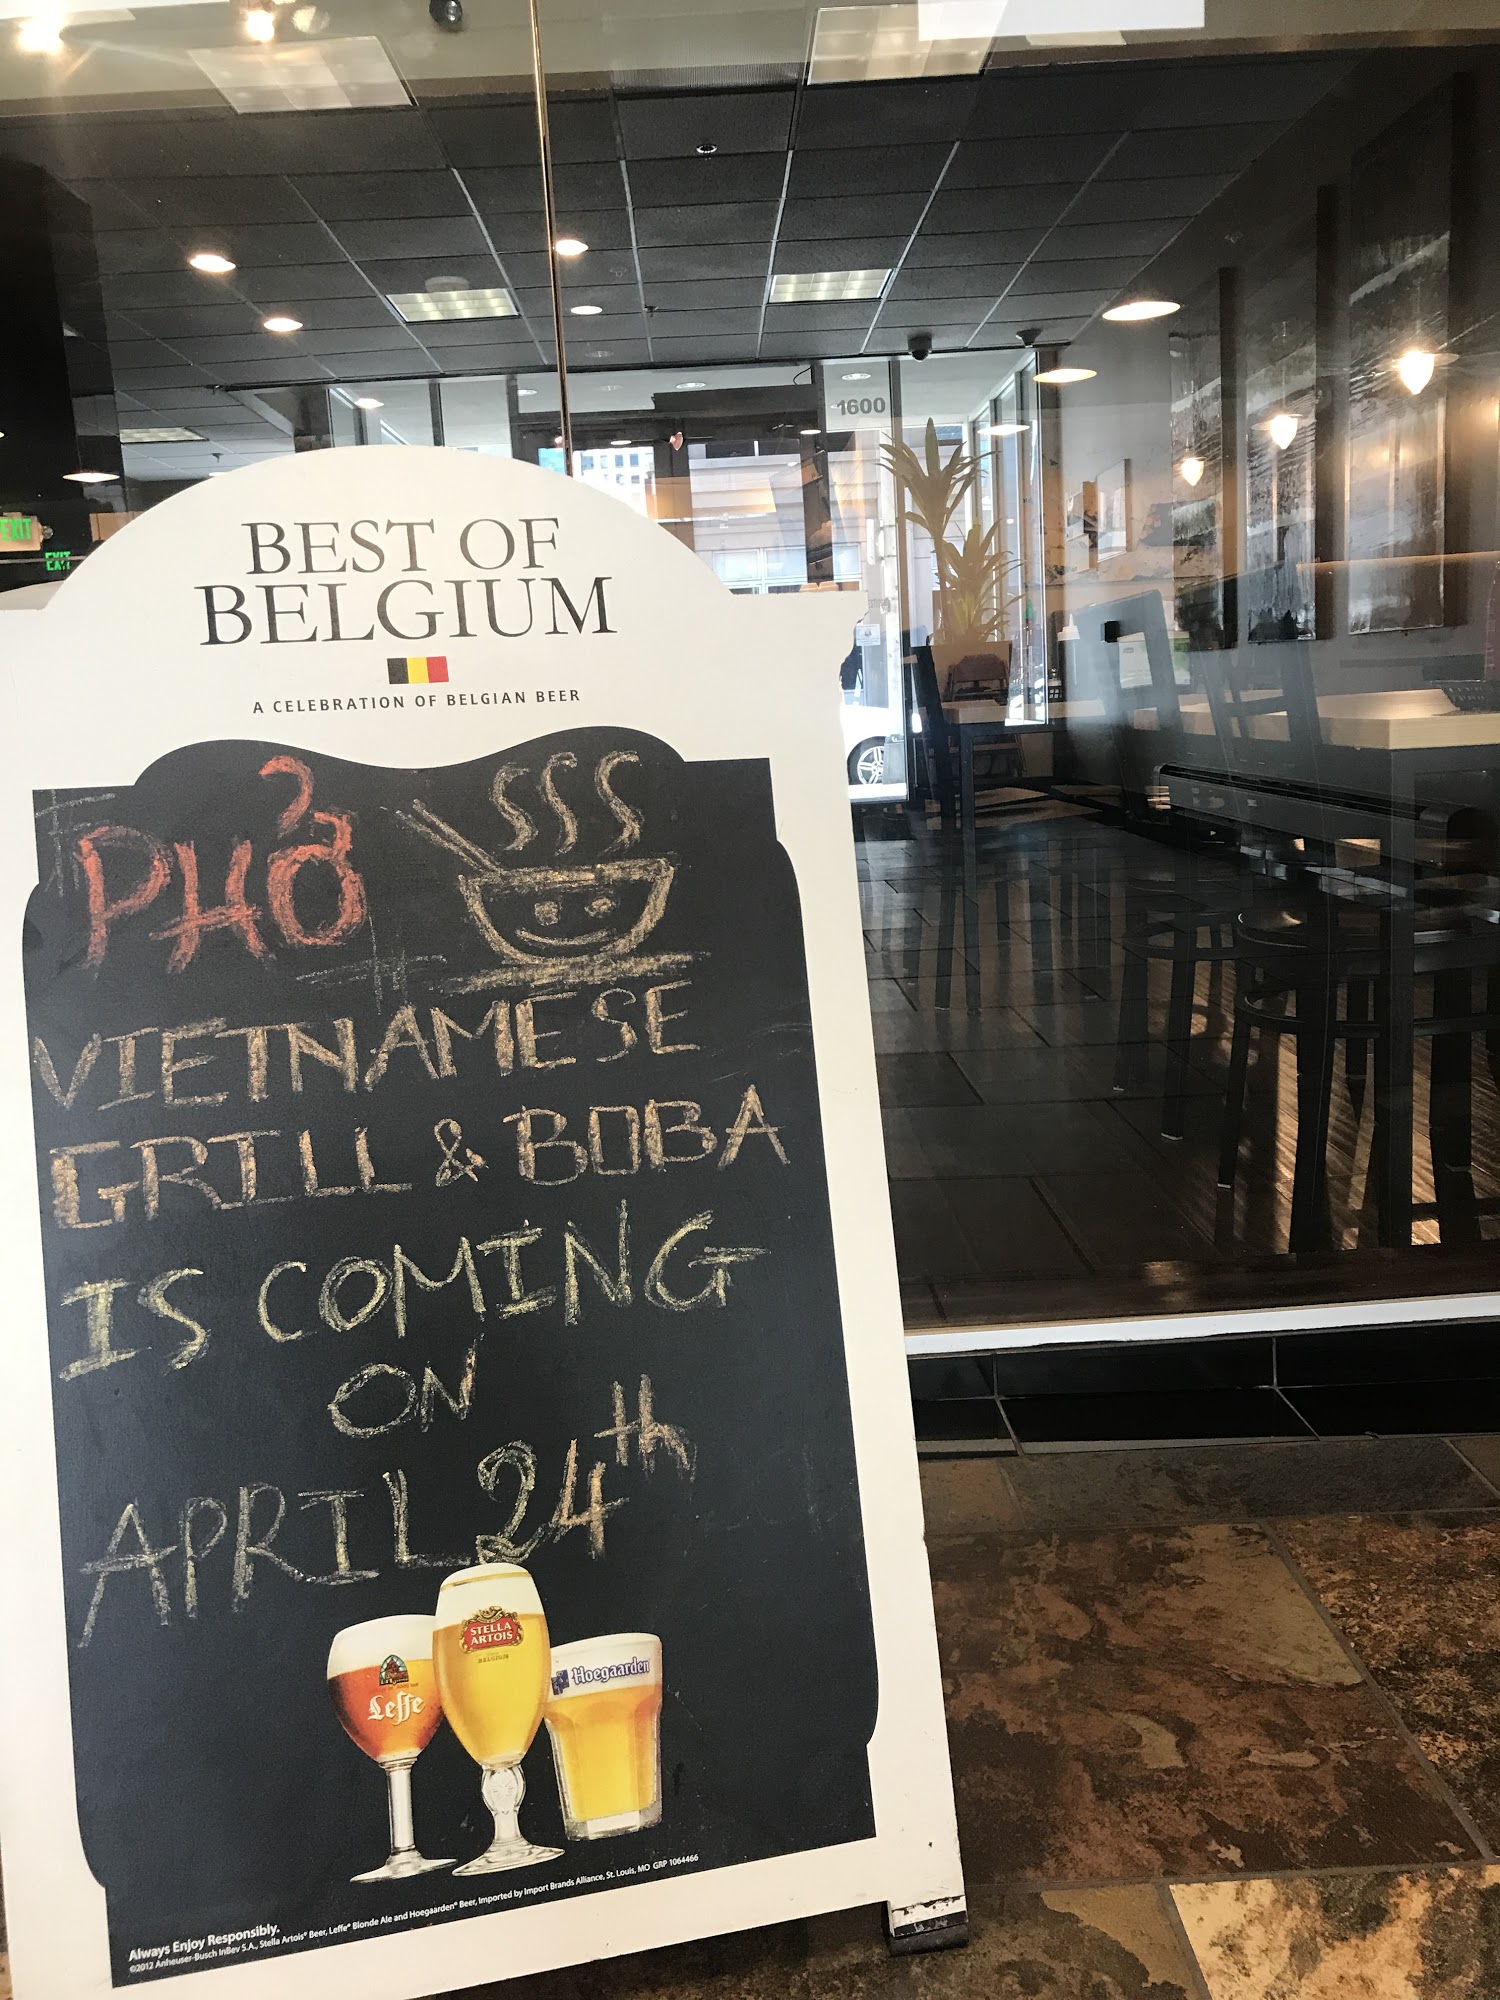 1600
EXIT
EXIT
BEST OF
BELGIUM
A CELEBRATION OF BELGIAN BEER
PHỞ
VIETNAMESE
GRILL & BOBA
IS COMING
ON
APRIL 24th
STELLA
ARTOIS
BELGIUM
Leffe
Hoegaarden
Always Enjoy Responsibly.
©2012 Anheuser-Busch InBev S.A., Stella Artois® Beer, Leffe® Blonde Ale and Hoegaarden® Beer, Imported by Import Brands Alliance, St. Louis, MO GRP 1064466